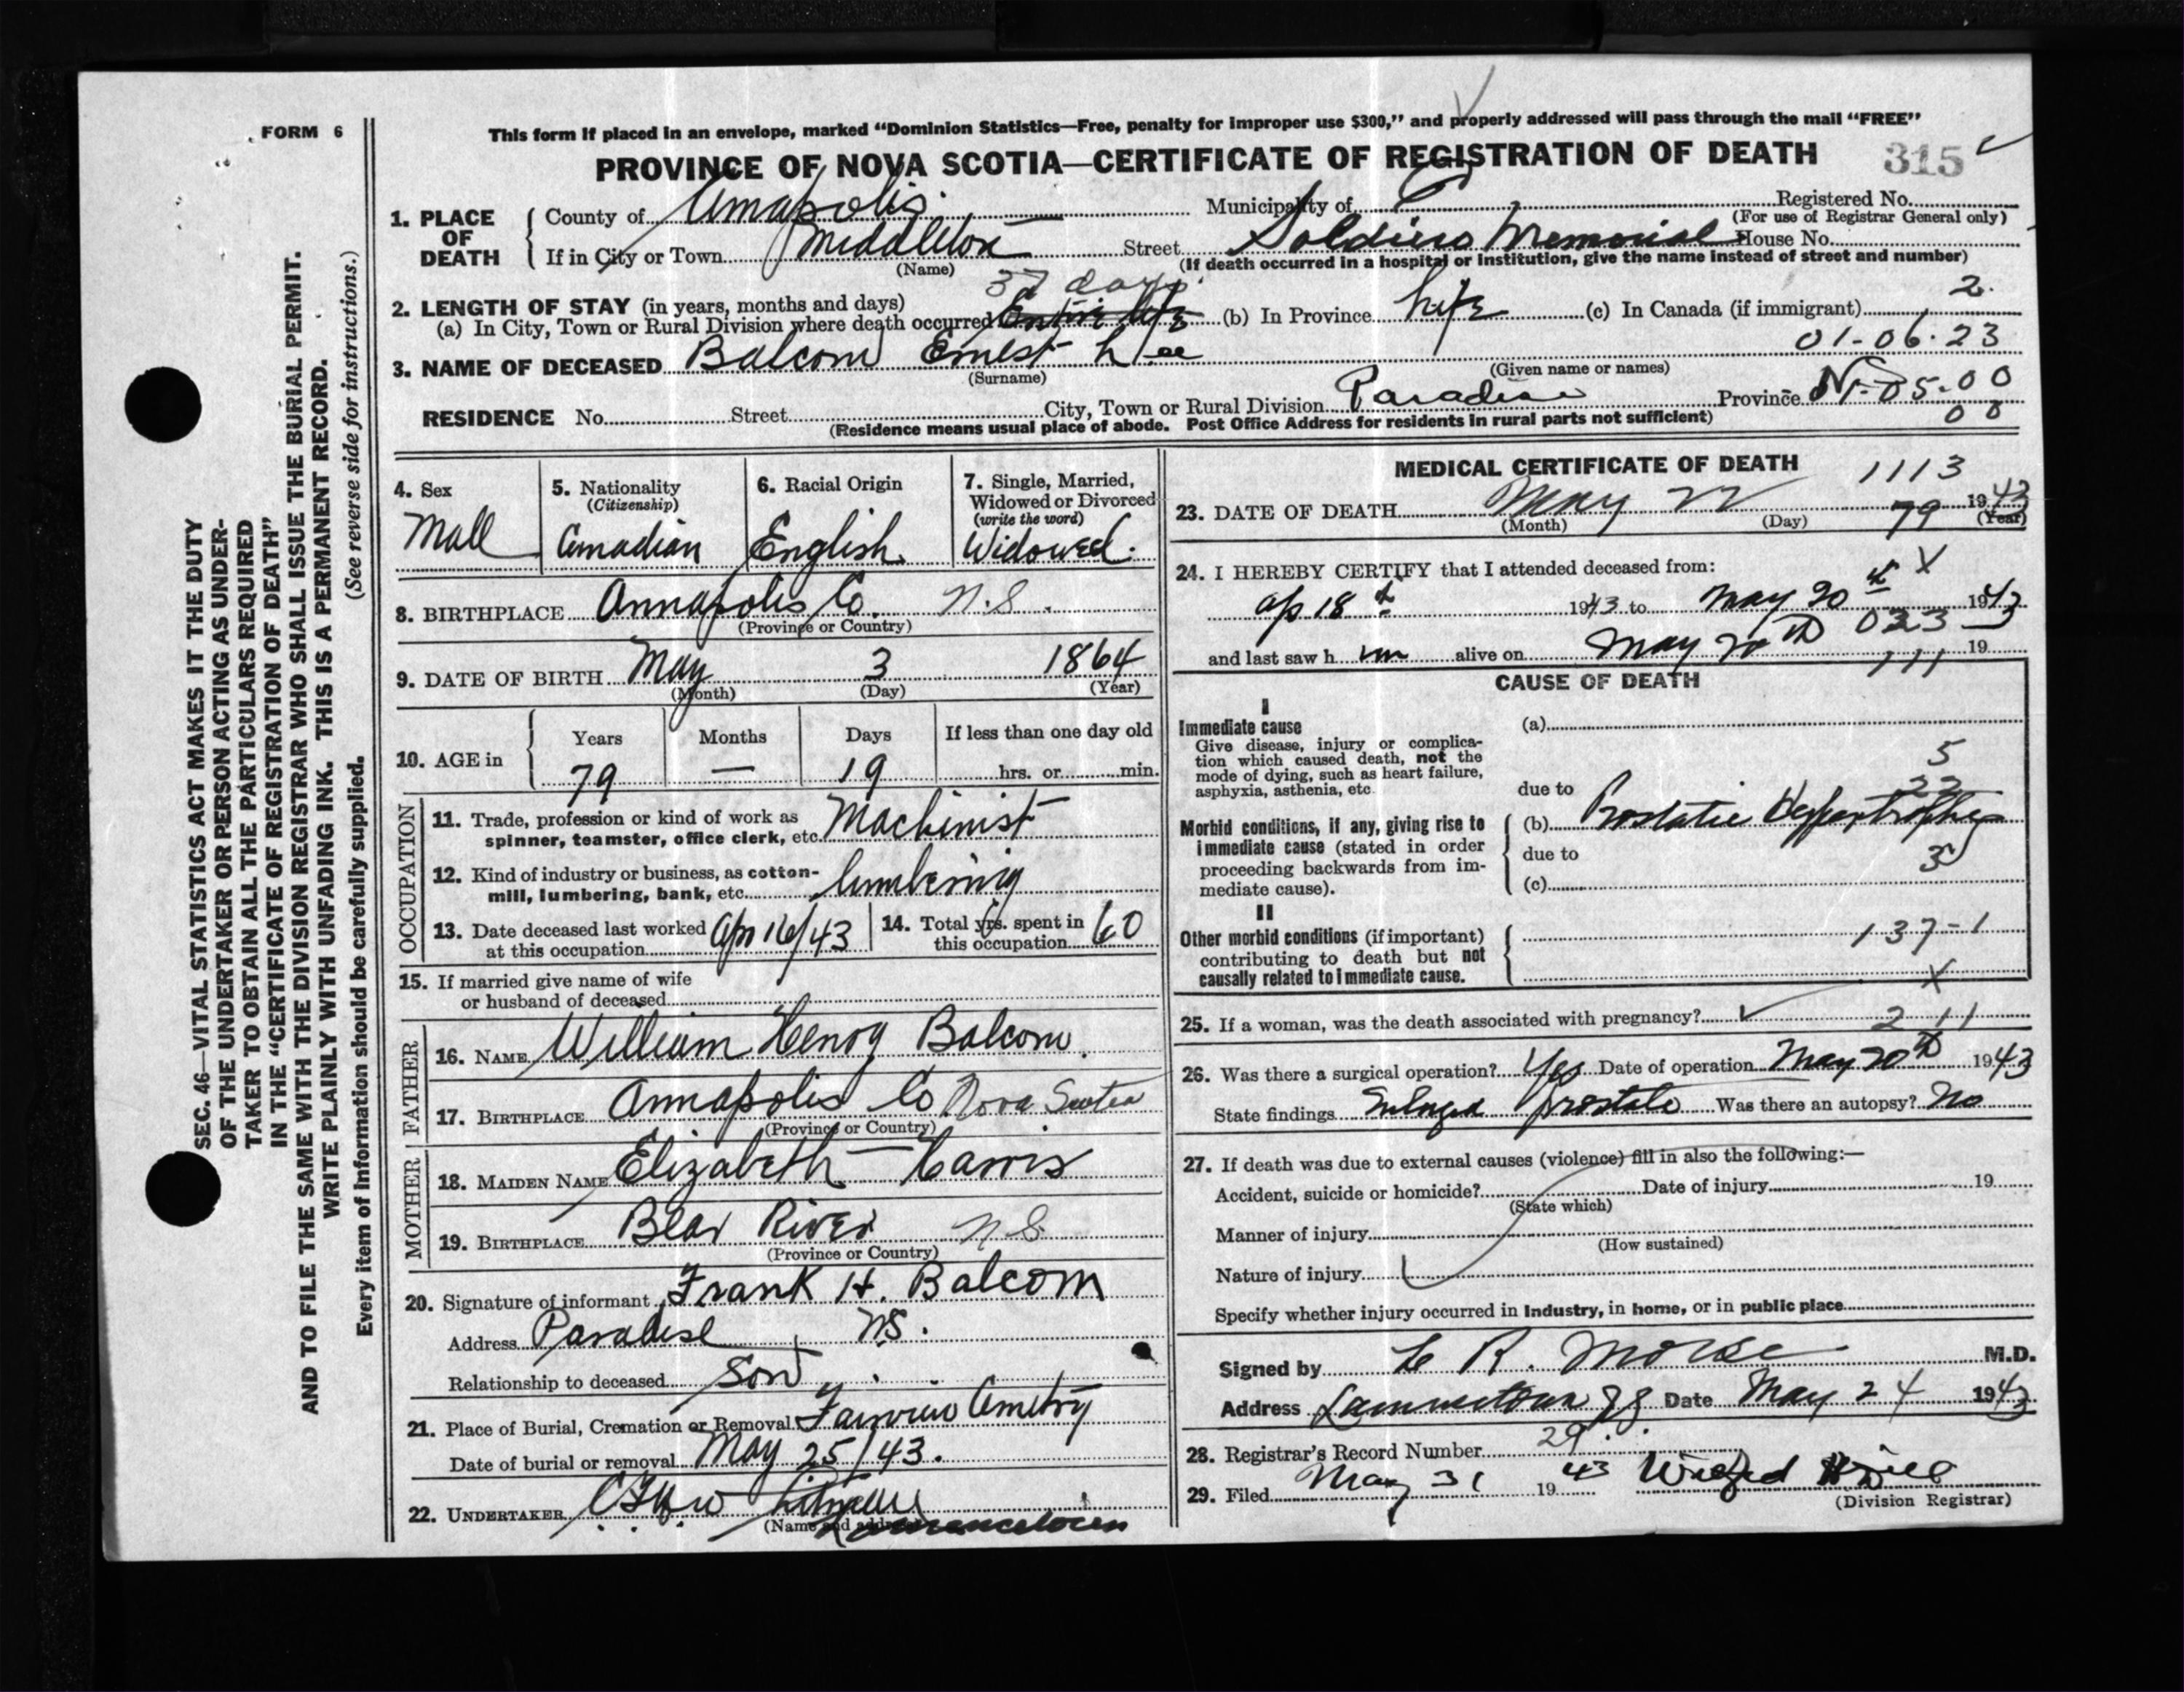 FORM 6
This form if placed in an envelope, marked "Dominion Statistics—Free, penalty for improper use $300," and properly addressed will pass through the mail "FREE"
PROVINCE OF NOVA SCOTIA—CERTIFICATE OF REGISTRATION OF DEATH 315
1. PLACE OF DEATH
County of Annapolis Municipality of Registered No.
(For use of Registrar General only)
If in City or Town Middleton Street Soldiers Memorial House No.
(Name) (If death occurred in a hospital or institution, give the name instead of street and number)
37 days
2. LENGTH OF STAY (in years, months and days)
(a) In City, Town or Rural Division where death occurred Entire life (b) In Province Life (c) In Canada (if immigrant) 2.
01-06-23
3. NAME OF DECEASED Balcom Ernest Lee
(Surname) (Given name or names)
RESIDENCE No. Street City, Town or Rural Division Paradise Province NS 01-05-00
(Residence means usual place of abode. Post Office Address for residents in rural parts not sufficient) 00
4. Sex Male
5. Nationality (Citizenship) Canadian
6. Racial Origin English
7. Single, Married, Widowed or Divorced (write the word) Widowed.
8. BIRTHPLACE Annapolis Co. N.S.
(Province or Country)
9. DATE OF BIRTH May 3 1864
(Month) (Day) (Year)
10. AGE in Years Months Days If less than one day old
79 — 19 hrs. or min.
OCCUPATION
11. Trade, profession or kind of work as spinner, teamster, office clerk, etc. Machinist
12. Kind of industry or business, as cotton-mill, lumbering, bank, etc. lumbering
13. Date deceased last worked at this occupation Apr 16/43
14. Total yrs. spent in this occupation 60
15. If married give name of wife
or husband of deceased
FATHER
16. NAME William Henry Balcom
17. BIRTHPLACE Annapolis Co Nova Scotia
(Province or Country)
MOTHER
18. MAIDEN NAME Elizabeth Harris
19. BIRTHPLACE Bear River N.S.
(Province or Country)
20. Signature of informant Frank H. Balcom
Address Paradise N.S.
Relationship to deceased Son
21. Place of Burial, Cremation or Removal Fairview Cemetry
Date of burial or removal May 25/43.
22. UNDERTAKER
(Name and address) Lawrencetown
MEDICAL CERTIFICATE OF DEATH 1113
23. DATE OF DEATH May 22 1943
(Month) (Day) (Year)
79
24. I HEREBY CERTIFY that I attended deceased from: X
Ap 18th 1943 to May 20th 1943
023
and last saw him alive on May 20th 19
111
CAUSE OF DEATH
I
Immediate cause
Give disease, injury or complication which caused death, not the mode of dying, such as heart failure, asphyxia, asthenia, etc.
(a)
5
22
due to
(b) Prostatic Hypertrophy
Morbid conditions, if any, giving rise to immediate cause (stated in order proceeding backwards from immediate cause).
due to
3
(c)
II
Other morbid conditions (if important) contributing to death but not causally related to immediate cause.
137-1
X
25. If a woman, was the death associated with pregnancy? 2 11
26. Was there a surgical operation? Yes Date of operation May 20th 1943
State findings Enlarged prostate Was there an autopsy? No
27. If death was due to external causes (violence) fill in also the following:—
Accident, suicide or homicide? Date of injury 19
(State which)
Manner of injury
(How sustained)
Nature of injury
Specify whether injury occurred in Industry, in home, or in public place
Signed by L R. Morse M.D.
Address Lawrencetown NS Date May 24 1943
28. Registrar's Record Number 29
29. Filed May 31 1943
(Division Registrar)
SEC. 46—VITAL STATISTICS ACT MAKES IT THE DUTY
OF THE UNDERTAKER OR PERSON ACTING AS UNDER-
TAKER TO OBTAIN ALL THE PARTICULARS REQUIRED
IN THE "CERTIFICATE OF REGISTRATION OF DEATH"
AND TO FILE THE SAME WITH THE DIVISION REGISTRAR WHO SHALL ISSUE THE BURIAL PERMIT.
WRITE PLAINLY WITH UNFADING INK. THIS IS A PERMANENT RECORD.
(See reverse side for instructions.)
Every item of information should be carefully supplied.